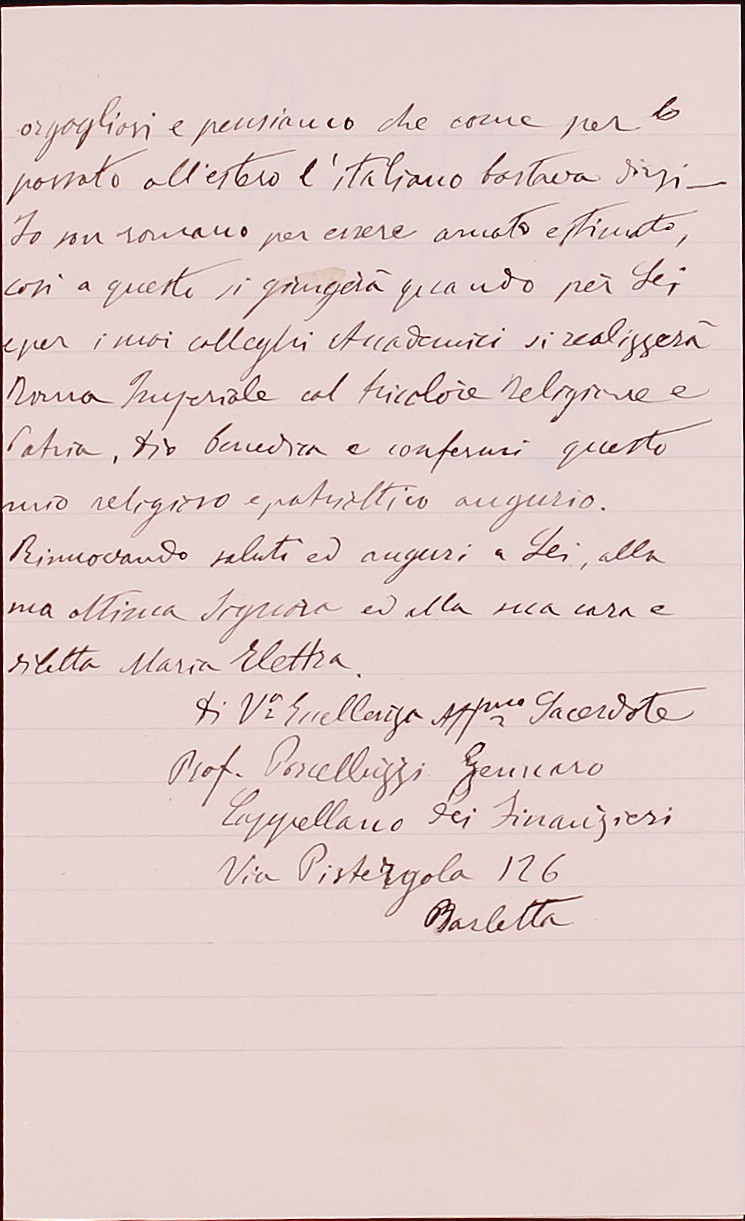 orgogliosi e pensiamo che come per lo
passato all'estero l'italiano bastava dirsi —
Io son romano per essere amato e stimato,
così a questo si giungerà quando per Lei
e per i suoi colleghi Accademici si realizzerà
Roma Imperiale col tricolore Religione e
Patria, Dio benedica e confermi questo
mio religioso e patriottico augurio.
Rinnovando saluti ed auguri a Lei, alla
sua ottima Signora ed alla sua cara e
diletta Maria Elettra.
Di Vª Eccellenza Affmo Sacerdote
Prof. Porcelluzzi Gennaro
Cappellano dei Finanzieri
Via Pistergola 126
Barletta